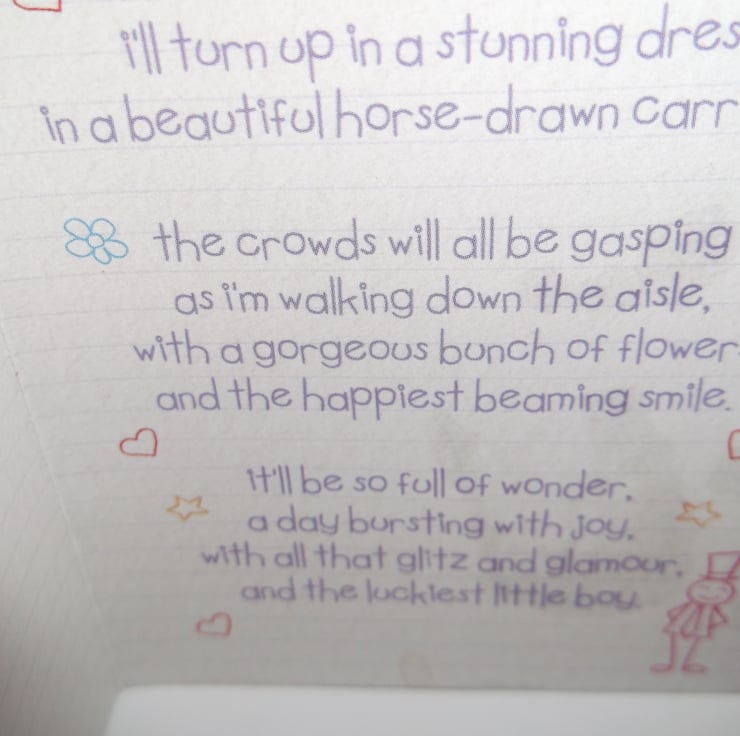 i'll turn up in a stunning dres
in a beautiful horse-drawn carr
the crowds will all be gasping
as i'm walking down the aisle,
with a gorgeous bunch of flower
and the happiest beaming smile.
it'll be so full of wonder,
a day bursting with joy,
with all that glitz and glamour,
and the luckiest little boy.